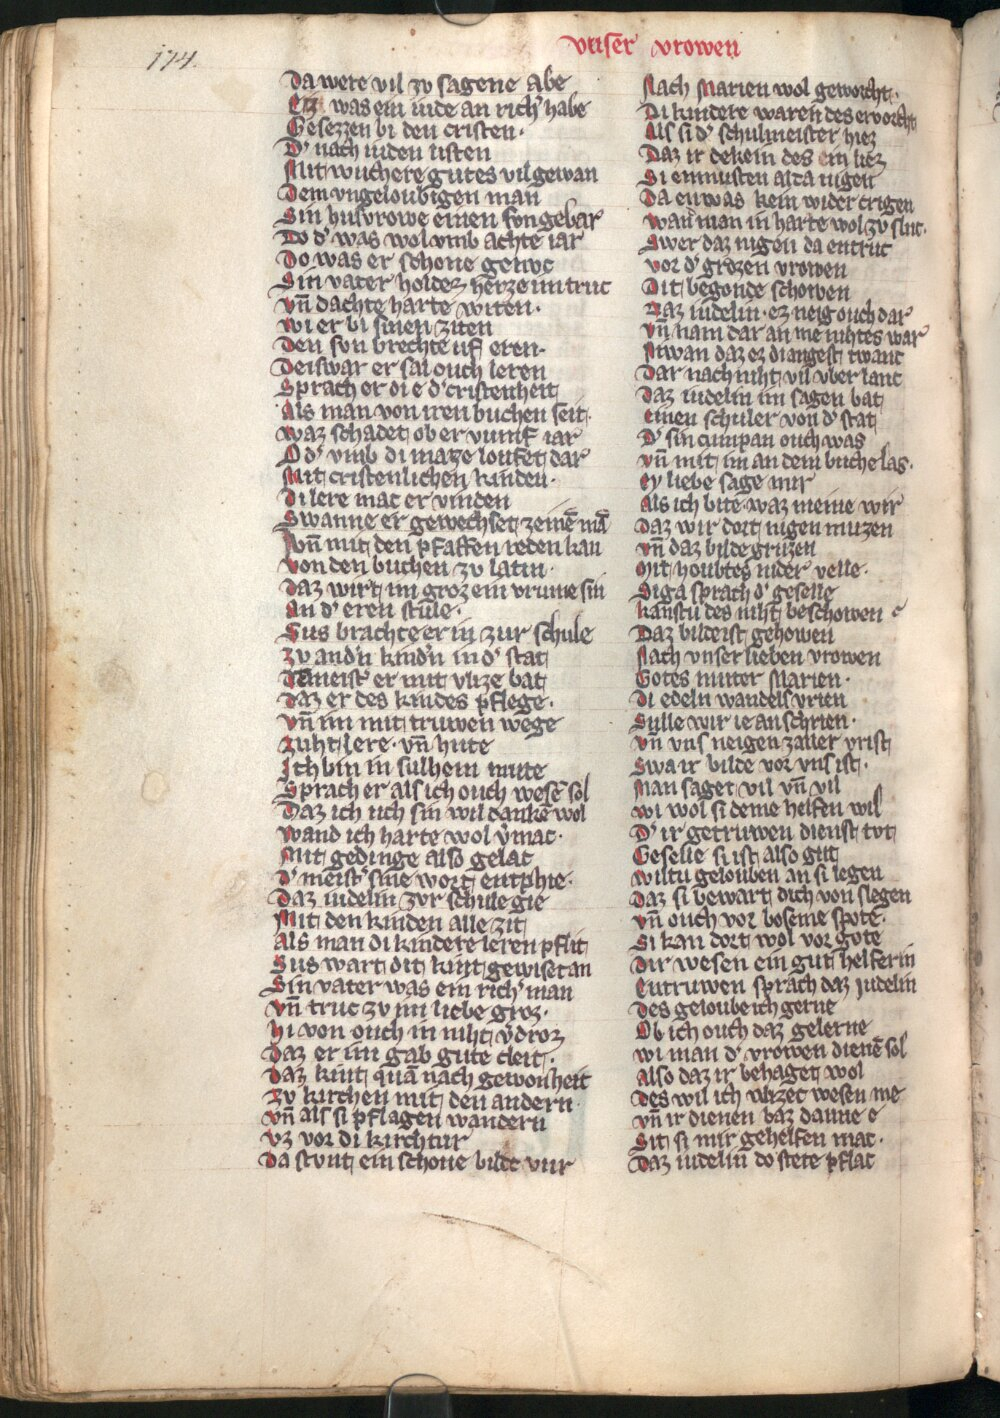 174.
vnser vrowen
Da were vil zv sagene abe
Ez was ein iude an rich' habe
Gesezzen bi den cristen·
D' nach iuden listen
Mit wuchere gutes vil gewan
Dem vngeloubigen man
Sin husvrowe einen son gebar
Do d' was wol vmb achte iar
Do was er schone genvc
Sin vater holdez herze im truc
Vn̄ dachte harte witen·
Wi er bi sinen ziten
Den son brechte uf eren·
Deiswar er sal ouch leren
Sprach er di e d' cristenheit
Als man von iren buchen seit·
Waz schadet ob er vumf iar
Od' vmb di maze loufet dar
Mit cristenlichen kinden·
Di lere mac er vinden
Swanne er gewechset zeinē mā
Vn̄ mit den pfaffen reden kan
Von den buchen zv latin·
Daz wirt im groz ein vrume sin
An d' eren stule·
Sus brachte er in zur schule
Zv and'n kind'n in d' stat
Den meist' er mit vlize bat
Daz er des kindes pflege·
Vn̄ im mit truwen wege
Zuht lere· vn̄ hute
Ich bin in sulhem mute
Sprach er als ich ouch wesē sol
Daz ich uch sin wil dankē wol
Wand ich harte wol v'mac·
Mit gedinge also gelac
D' meist' sine wort entphie·
Daz iudelin zvr schule gie
Mit den kinden alle zit
Als man di kindere leren pflit
Sus wart dit kint gewiset an
Sin vater was ein rich' man
Vn̄ truc zv im liebe groz·
Hi von ouch in niht v'droz
Daz er im gab gute cleit·
Daz kint quā nach gewonheit
Zv kirchen mit den andern
Vn̄ als si pflagen wandern
Vz vor di kirchtur
Da stvnt ein schone bilde vur
Nach Marien wol geworcht·
Di kindere waren des ervorcht
Als si d' schulmeister hiez
Daz ir dekein des ein liez
Si enmusten alda nigen
Da en was kein wider crigen
Wan man in harte wol zv sluc·
Swer daz nigen da entruc
Vor d' grozen vrowen
Dit begonde schowen
Daz iudelin· ez neig ouch dar
Vn̄ nam dar an me nihtes war
Niwan daz ez di angest twanc
Dar nach niht vil vber lanc
Daz iudelin im sagen bat
Einen schuler von d' stat
D' sin cumpan ouch was
Vn̄ mit im an dem buche las·
Ey liebe sage mir
Als ich bite· waz meine wir
Daz wir dort nigen muzen
Vn̄ daz bilde gruzen
Mit houbtes nider velle·
Siga sprach d' geselle
Kanstu des niht beschowen
Daz bilde ist gehowen
Nach vnser lieben vrowen
Gotes muter Marien·
Di edeln wandels vrien
Sulle wir ie an schrien·
Vn̄ vns neigen zaller vrist
Swa ir bilde vor vns ist·
Man saget vil vn̄ vil
Wi wol si deme helfen wil
D' ir getruwen dienst tvt
Geselle si ist also gut
Wiltu gelouben an si legen
Daz si bewart dich von slegen
Vn̄ ouch vor boseme spote·
Si kan dort wol vor gote
Dir wesen ein gut helferin
Entruwen sprach daz Judelin
Des geloube ich gerne
Ob ich ouch daz gelerne
Wi man d' vrowen dienē sol
Also daz ir behaget wol
Des wil ich vlizec wesen me
Vn̄ ir dienen baz danne e
Sit si mir gehelfen mac·
Daz iudelin do stete pflac